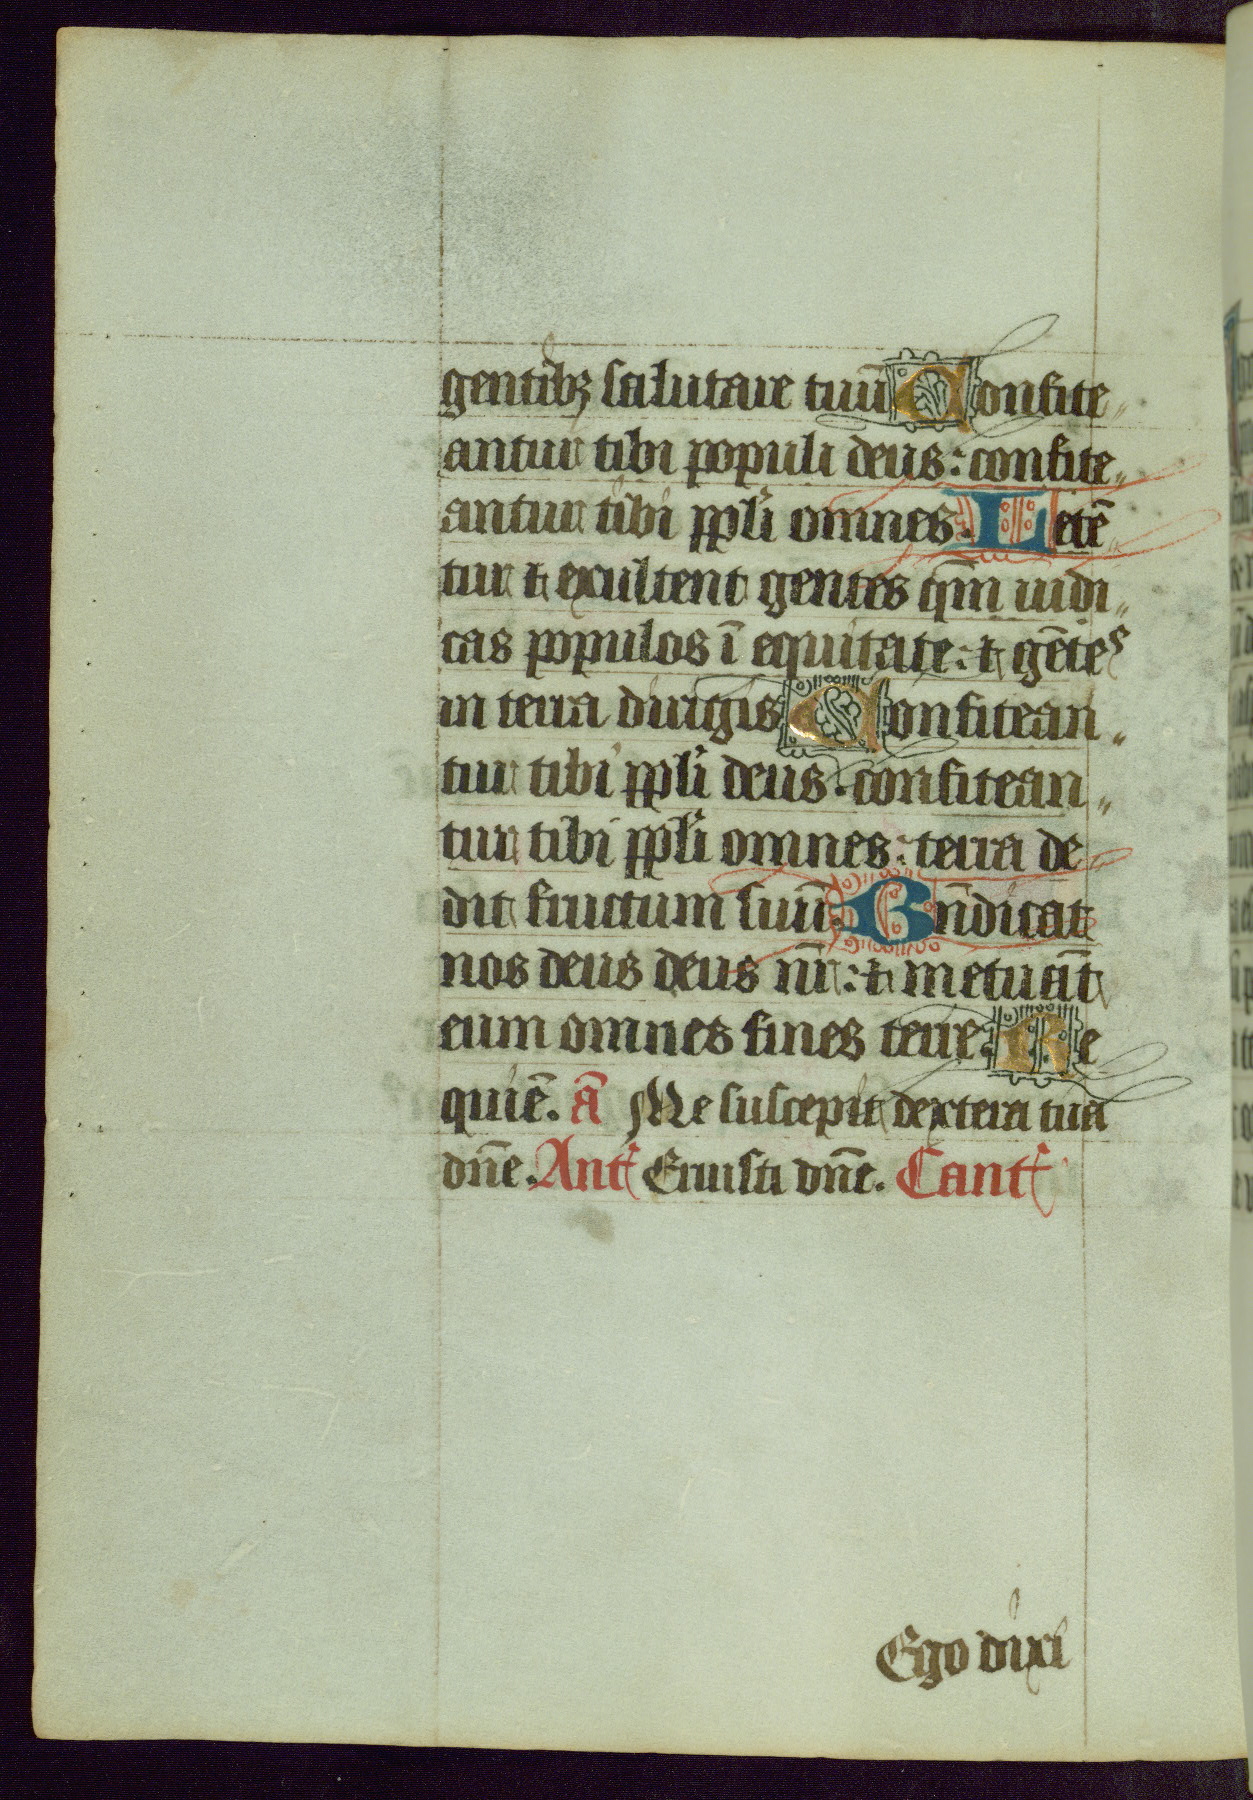 gentibꝫ salutare tuū Confite
antur tibi populi deus: confite
antur tibi ppl'i omnes. Letē
tur ⁊ exultent gentes qm̄ iudi
cas populos ī equitate: ⁊ gētes
in terra dirigis Confitean
tur tibi ppl'i deus. confitean
tur tibi ppl'i omnes: terra de
dit fructum suū. Bn̄dicat
nos deus deus nr̄: ⁊ metuāt
eum omnes fines terre. Re
quiē. ā Me suscepit dextera tua
dn̄e. Ant' Eruisti dn̄e. Cant'
Ego dixi